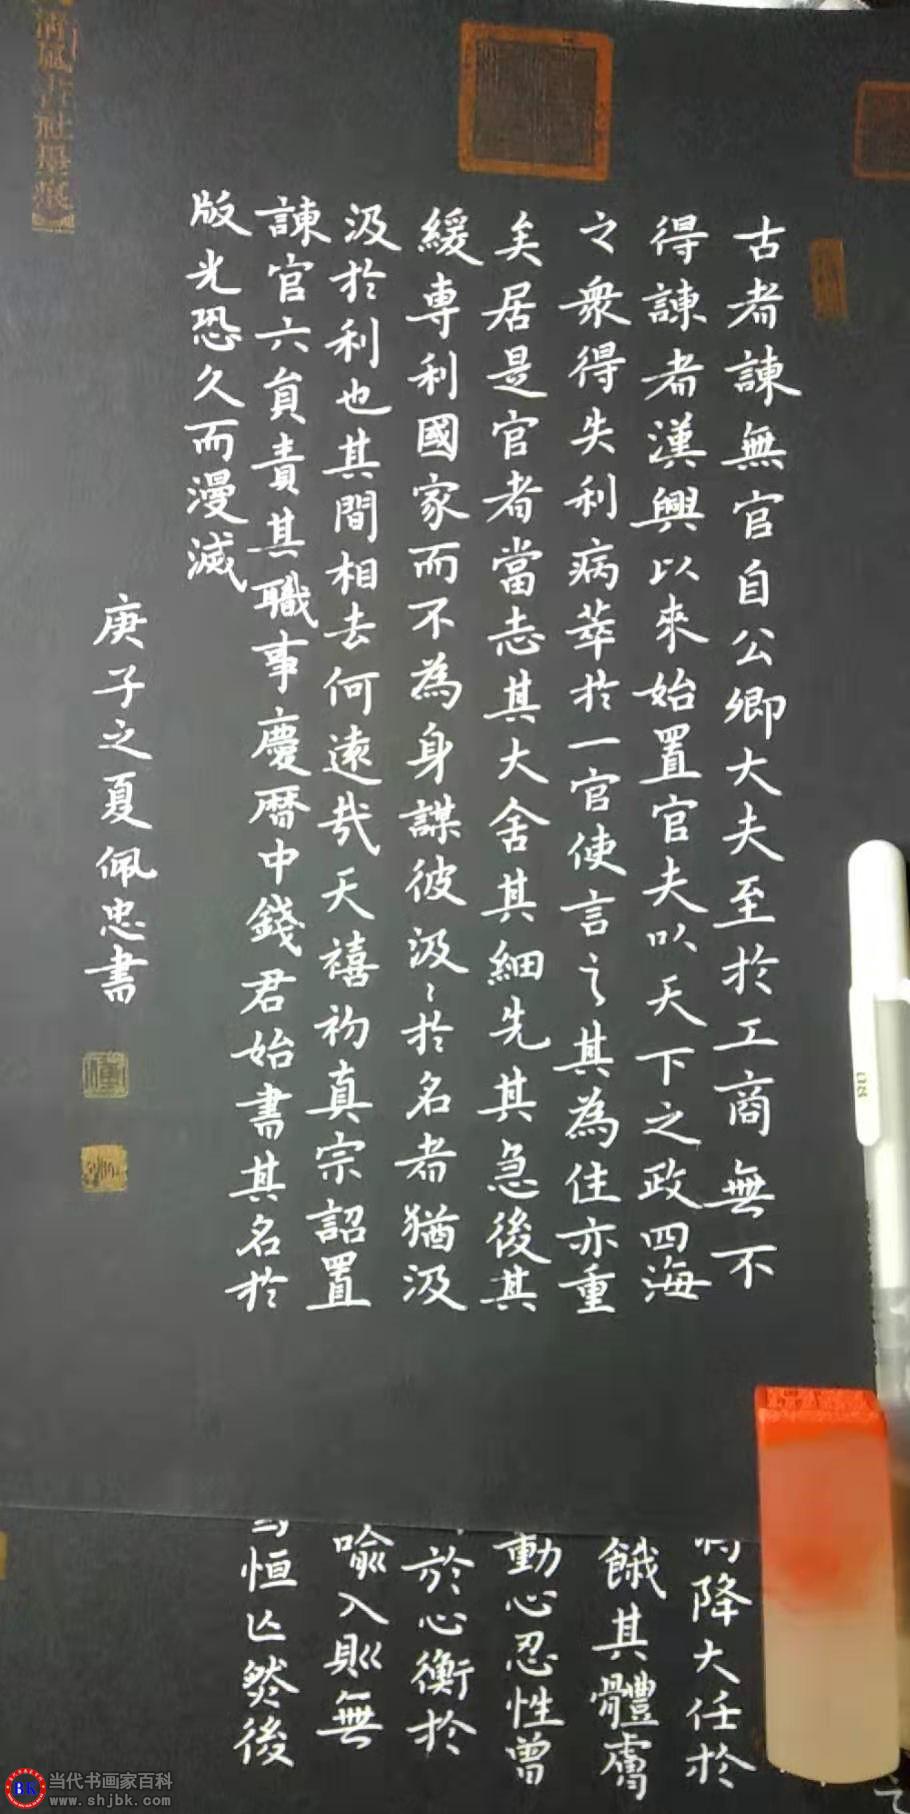 古者諫無官自公卿大夫至於工商無不
得諫者漢興以來始置官夫以天下之政四海
之衆得失利病萃於一官使言之其為住亦重
矣居是官者當志其大舍其細先其急後其
緩專利國家而不為身謀彼汲〻於名者猶汲
汲於利也其間相去何遠哉天禧初真宗詔置
諫官六員責其職事慶曆中錢君始書其名於
版光恐久而漫滅
庚子之夏佩忠書
降大任於
餓其體膚
動心忍性曾
於心衡於
喻入則無
恒亡然後
BK
当代书画家百科
www.shjbk.com